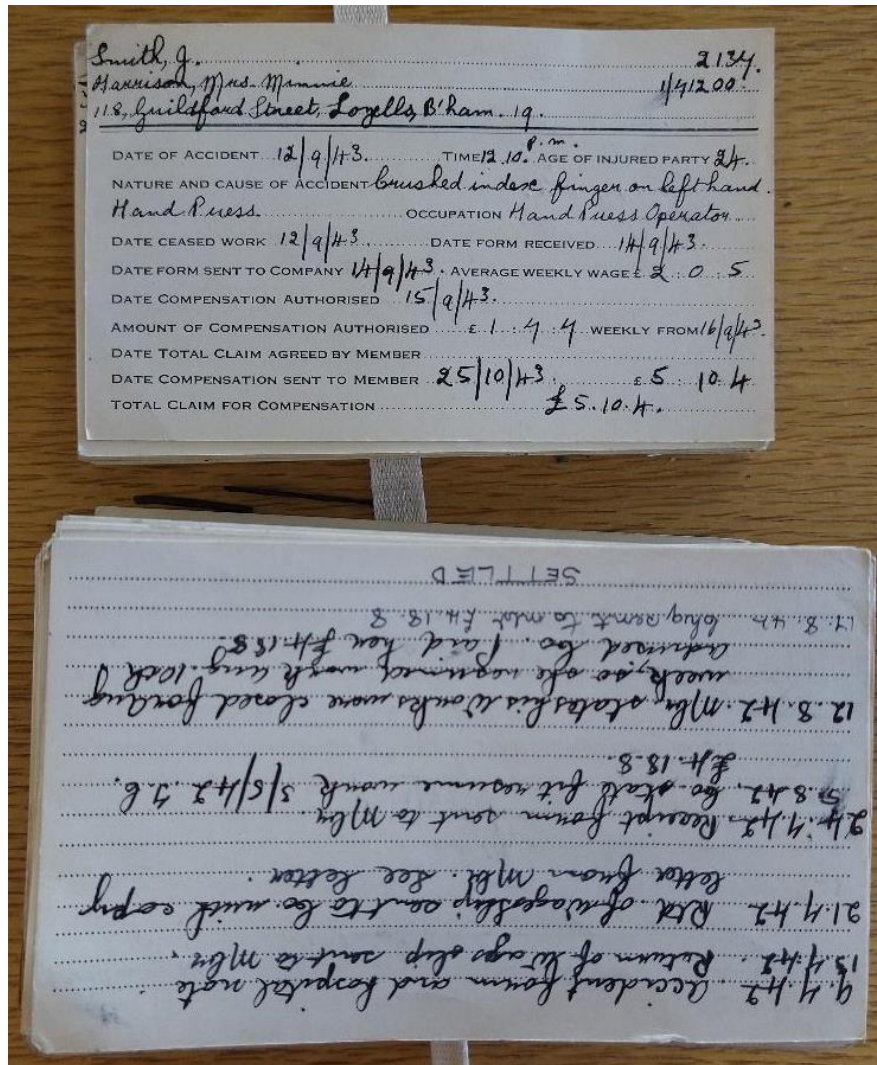 Smith, J. 2134.
Harrison, Mrs. Minnie 1/41200.
118, Guildford Street, Lozells, B'ham. 19.
DATE OF ACCIDENT 12/9/43. TIME 12.10. p.m. AGE OF INJURED PARTY 24.
NATURE AND CAUSE OF ACCIDENT Crushed index finger on left hand.
Hand Press. OCCUPATION Hand Press Operator
DATE CEASED WORK 12/9/43. DATE FORM RECEIVED 14/9/43.
DATE FORM SENT TO COMPANY 14/9/43. AVERAGE WEEKLY WAGE £ 2 : 0 : 5
DATE COMPENSATION AUTHORISED 15/9/43.
AMOUNT OF COMPENSATION AUTHORISED £ 1 : 7 : 7 WEEKLY FROM 16/9/43.
DATE TOTAL CLAIM AGREED BY MEMBER
DATE COMPENSATION SENT TO MEMBER 25/10/43. £ 5 : 10 : 4
TOTAL CLAIM FOR COMPENSATION £5.10.4.
9.7.42 Accident form and hospital note.
15.7.42. Return of Wages slip sent to Mbr.
21.7.42 Rtd of wageslip sent to Co with copy
letter from Mbr. See letter.
24.7.42 Receipt form sent to Mbr.
5.8.42. Co state fit resume work 3/8/42
£4.18.8.
12.8.42 Mbr. states his Works were closed for Aug
week, so she resumed work Aug. 10th
advised Co. Paid her £4.18.8.
17.8.42 Chq sent to mbr £4.18.8
SETTLED